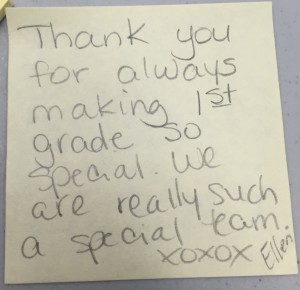 Thank you
for always
making 1st
grade so
special. We
are really such
a special team.
xoxox Ellen